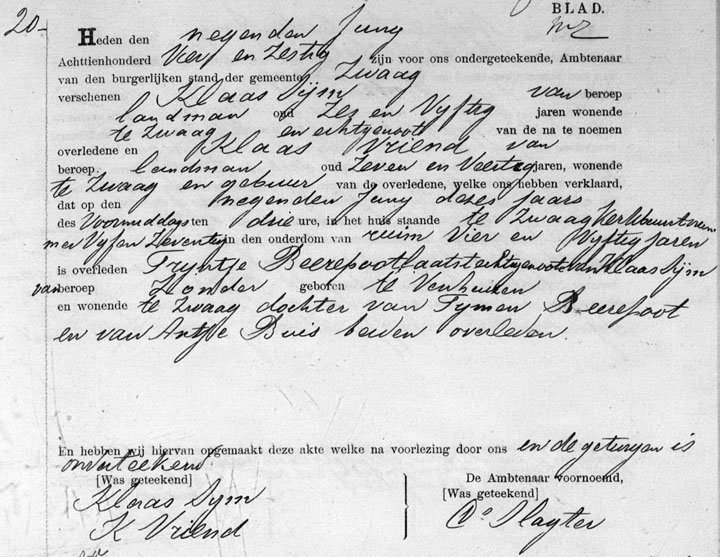 BLAD.
20-
Heden den negenden Juny
Achttienhonderd Vier en Zestig zijn voor ons ondergeteekende, Ambtenaar
van den burgerlijken stand der gemeente Zwaag
verschenen Klaas Sijm van beroep
landman oud Zes en Vyftig jaren wonende
te Zwaag en echtgenoot van de na te noemen
overledene en Klaas Vriend van
beroep landman oud Zeven en Veertig jaren, wonende
te Zwaag en gebuur van de overledene, welke ons hebben verklaard,
dat op den negenden Juny dezes jaars
des Voormiddags ten drie ure, in het huis staande te Zwaag Kerkbuurt num
mer Vyf en Zeventig in den ouderdom van ruim Vier en Vyftig jaren
is overleden Tryntje Beerepoot laatst echtgenoote van Klaas Sijm
van beroep Zonder geboren te Venhuizen
en wonende te Zwaag dochter van Tymen Beerepoot
en van Antje Buis beiden overleden.
En hebben wij hiervan opgemaakt deze akte welke na voorlezing door ons en de getuigen is
onderteekend
[Was geteekend] De Ambtenaar voornoemd,
[Was geteekend]
Klaas Sym
K Vriend
Slagter